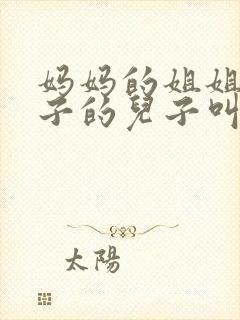 妈妈的姐姐
子的兒子叫
太陽